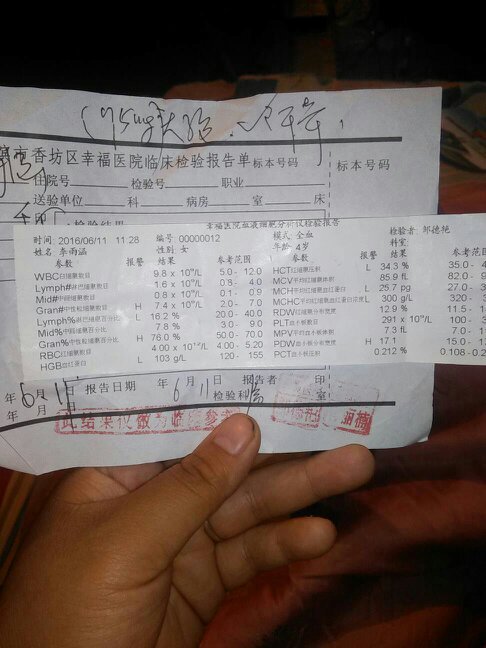 市香坊区幸福医院临床检验报告单 标本号码 标本号码
住院号 检验号 职业
送验单位 科 病房 室 床
检验结果
幸福医院血液细胞分析仪检验报告
时间 2016/06/11 11:28 编号 00000012 模式 全血 检验者 邹德艳
姓名 李萌涵 性别 女 年龄 4岁 科室:
参数 报警 结果 参考范围 参数 报警 结果 参考范围
WBC白细胞数目 9.8 x 10⁹/L 5.0 - 12.0 HCT红细胞压积 L 34.3 % 35.0 - 4
Lymph#淋巴细胞数目 1.6 x 10⁹/L 0.8 - 4.0 MCV平均红细胞体积 85.9 fL 82.0 - 9
Mid#中间细胞数目 0.8 x 10⁹/L 0.1 - 0.9 MCH平均红细胞血红蛋白 L 25.7 pg 27.0 - 3
Gran#中性粒细胞数目 H 7.4 x 10⁹/L 2.0 - 7.0 MCHC平均红细胞血红蛋白浓度 L 300 g/L 320 - 3
Lymph%淋巴细胞百分比 L 16.2 % 20.0 - 40.0 RDW红细胞分布宽度 12.9 % 11.5 - 1
Mid%中间细胞百分比 7.8 % 3.0 - 9.0 PLT血小板数目 291 x 10⁹/L 100 - 3
Gran%中性粒细胞百分比 H 76.0 % 50.0 - 70.0 MPV平均血小板体积 7.3 fL 7.0 - 1
RBC红细胞数目 4.00 x 10¹²/L 4.00 - 5.20 PDW血小板分布宽度 H 17.1 15.0 - 1
HGB血红蛋白 L 103 g/L 120 - 155 PCT血小板压积 0.212 % 0.108 - 0.2
年 6 月 11 日 报告日期 年 6 月 11 日 报告者 印
年 月 日 检验科 室
此结果仅做为临床参考